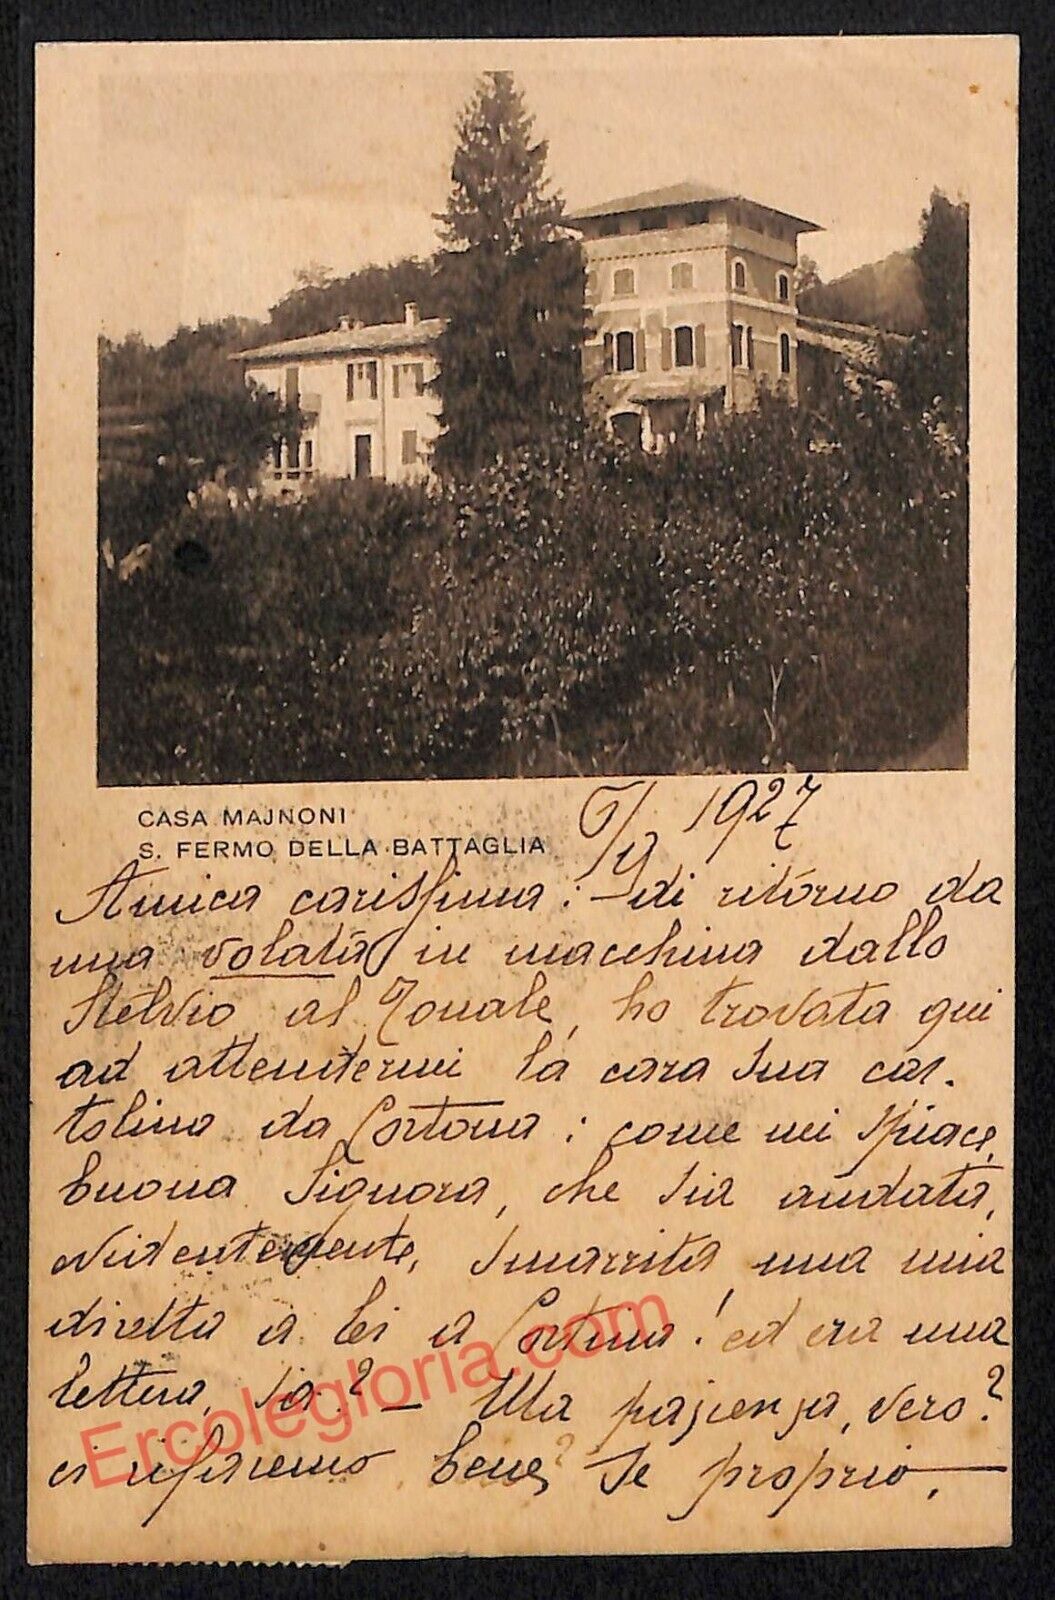 CASA MAJNONI
S. FERMO DELLA BATTAGLIA
6/9 1927
Amica carissima : – di ritorno da
una volata in macchina dallo
Stelvio al Tonale, ho trovata qui
ad attendermi la cara sua car-
tolina da Cortona : come mi spiace,
buona Signora, che sia andata,
evidentemente, smarrita una mia
diretta a lei a Cortina! ed era una
lettera, sa? – Ma pazienza, vero?
ci rifaremo bene? Se proprio,
Ercolegloria.com